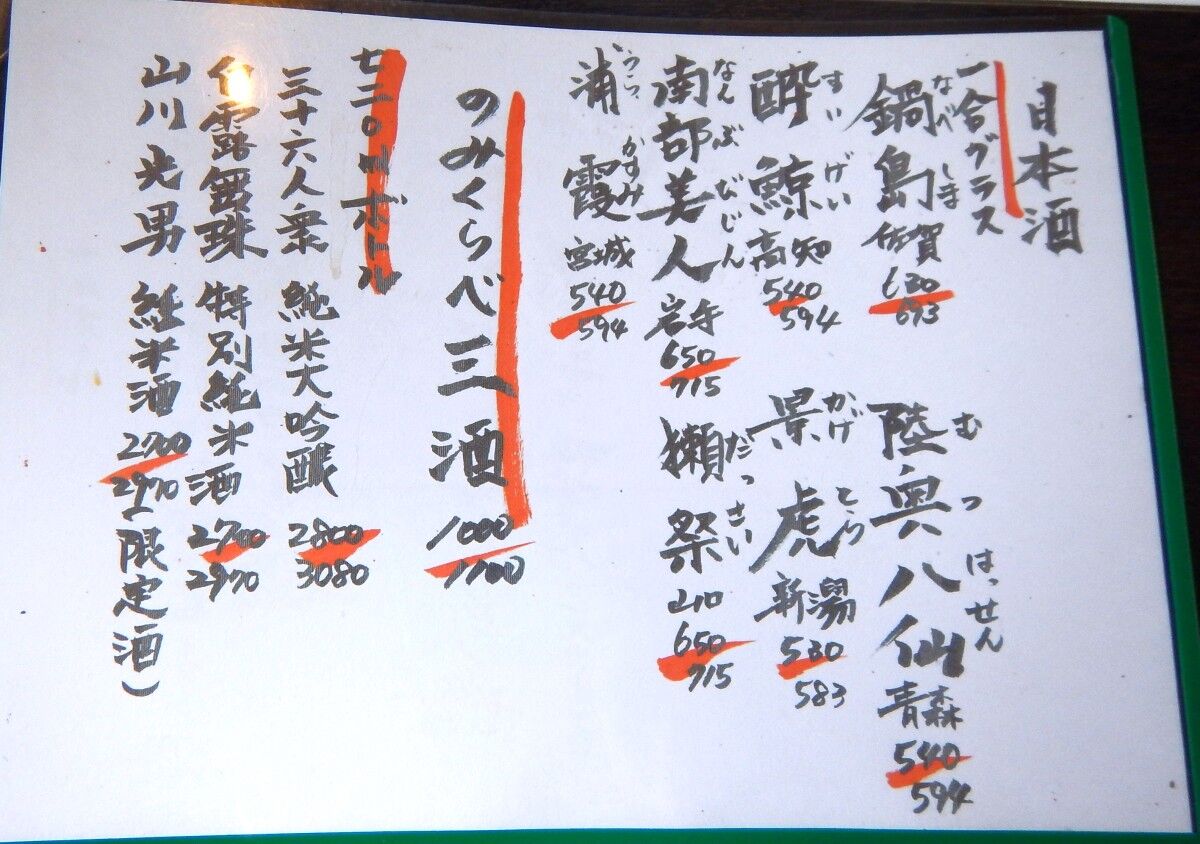 日本酒
一合グラス
鍋島 佐賀 630 693
なべしま
陸奥八仙 青森 540 594
むつはっせん
酔鯨 高知 540 594
すいげい
景虎 新潟 530 583
かげとら
南部美人 岩手 650 715
なんぶびじん
獺祭 山口 650 715
だっさい
浦霞 宮城 540 594
うらかすみ
のみくらべ三酒 1000 1100
七二〇mlボトル
三十六人衆 純米大吟醸 2800 3080
白露垂珠 特別純米酒 2700 2970
山川光男 純米酒 2700 2970 (限定酒)